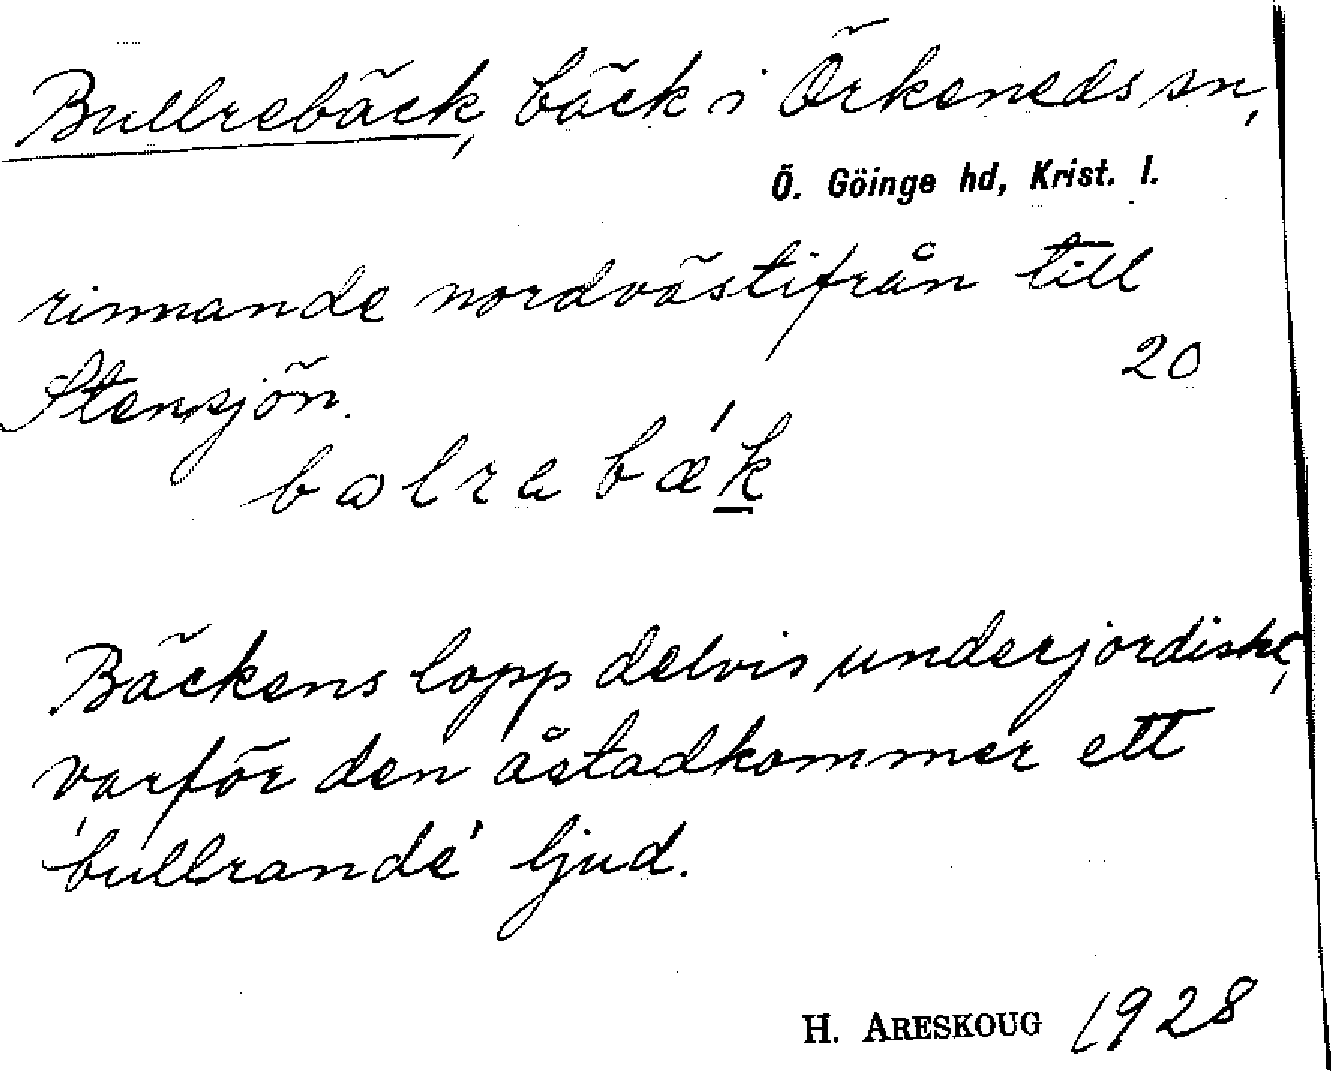 Bullrebäck, bäck i Örkeneds sn,
Ö. Göinge hd, Krist. l.
rinnande nordvästifrån till
Stensjön.
20
balrabǽk
Bäckens lopp delvis underjordiskt,
varför den åstadkommer ett
'bullrande' ljud.
H. ARESKOUG 1928